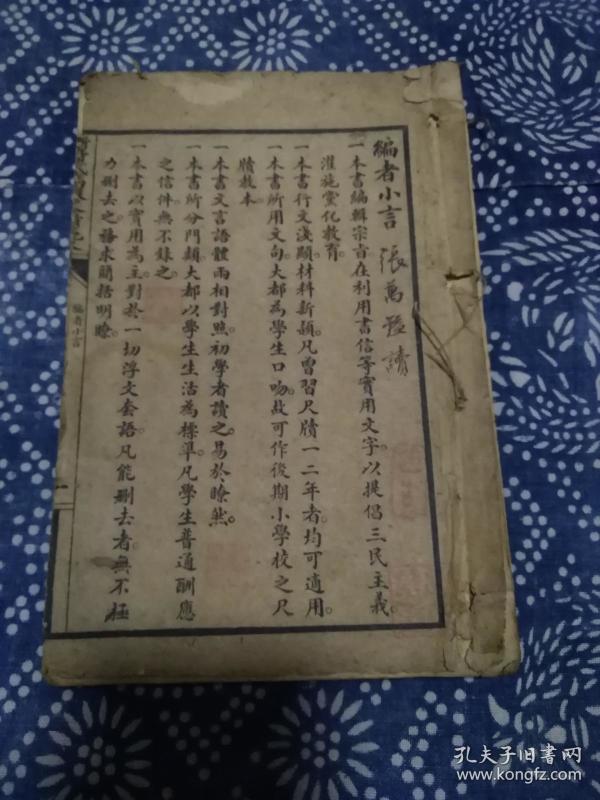 編者小言
張萬 讀
一本書編輯宗旨在利用書信等實用文字。以提倡三民主義。
灌施黨化教育。
一本書行文淺顯。材料新穎。凡曾習尺牘一二年者。均可適用。
一本書所用文句。大都為學生口吻。故可作後期小學校之尺
牘教本。
一本書文言語體兩相對照。初學者讀之。易於瞭然。
一本書所分門類。大都以學生生活為標準。凡學生普通酬應
之信件。無不錄之。
一本書以實用為主。對於一切浮文套語。凡能刪去者。無不極
力刪去之。務求簡括明瞭。
編者小言
一
孔夫子旧书网
www.kongfz.com